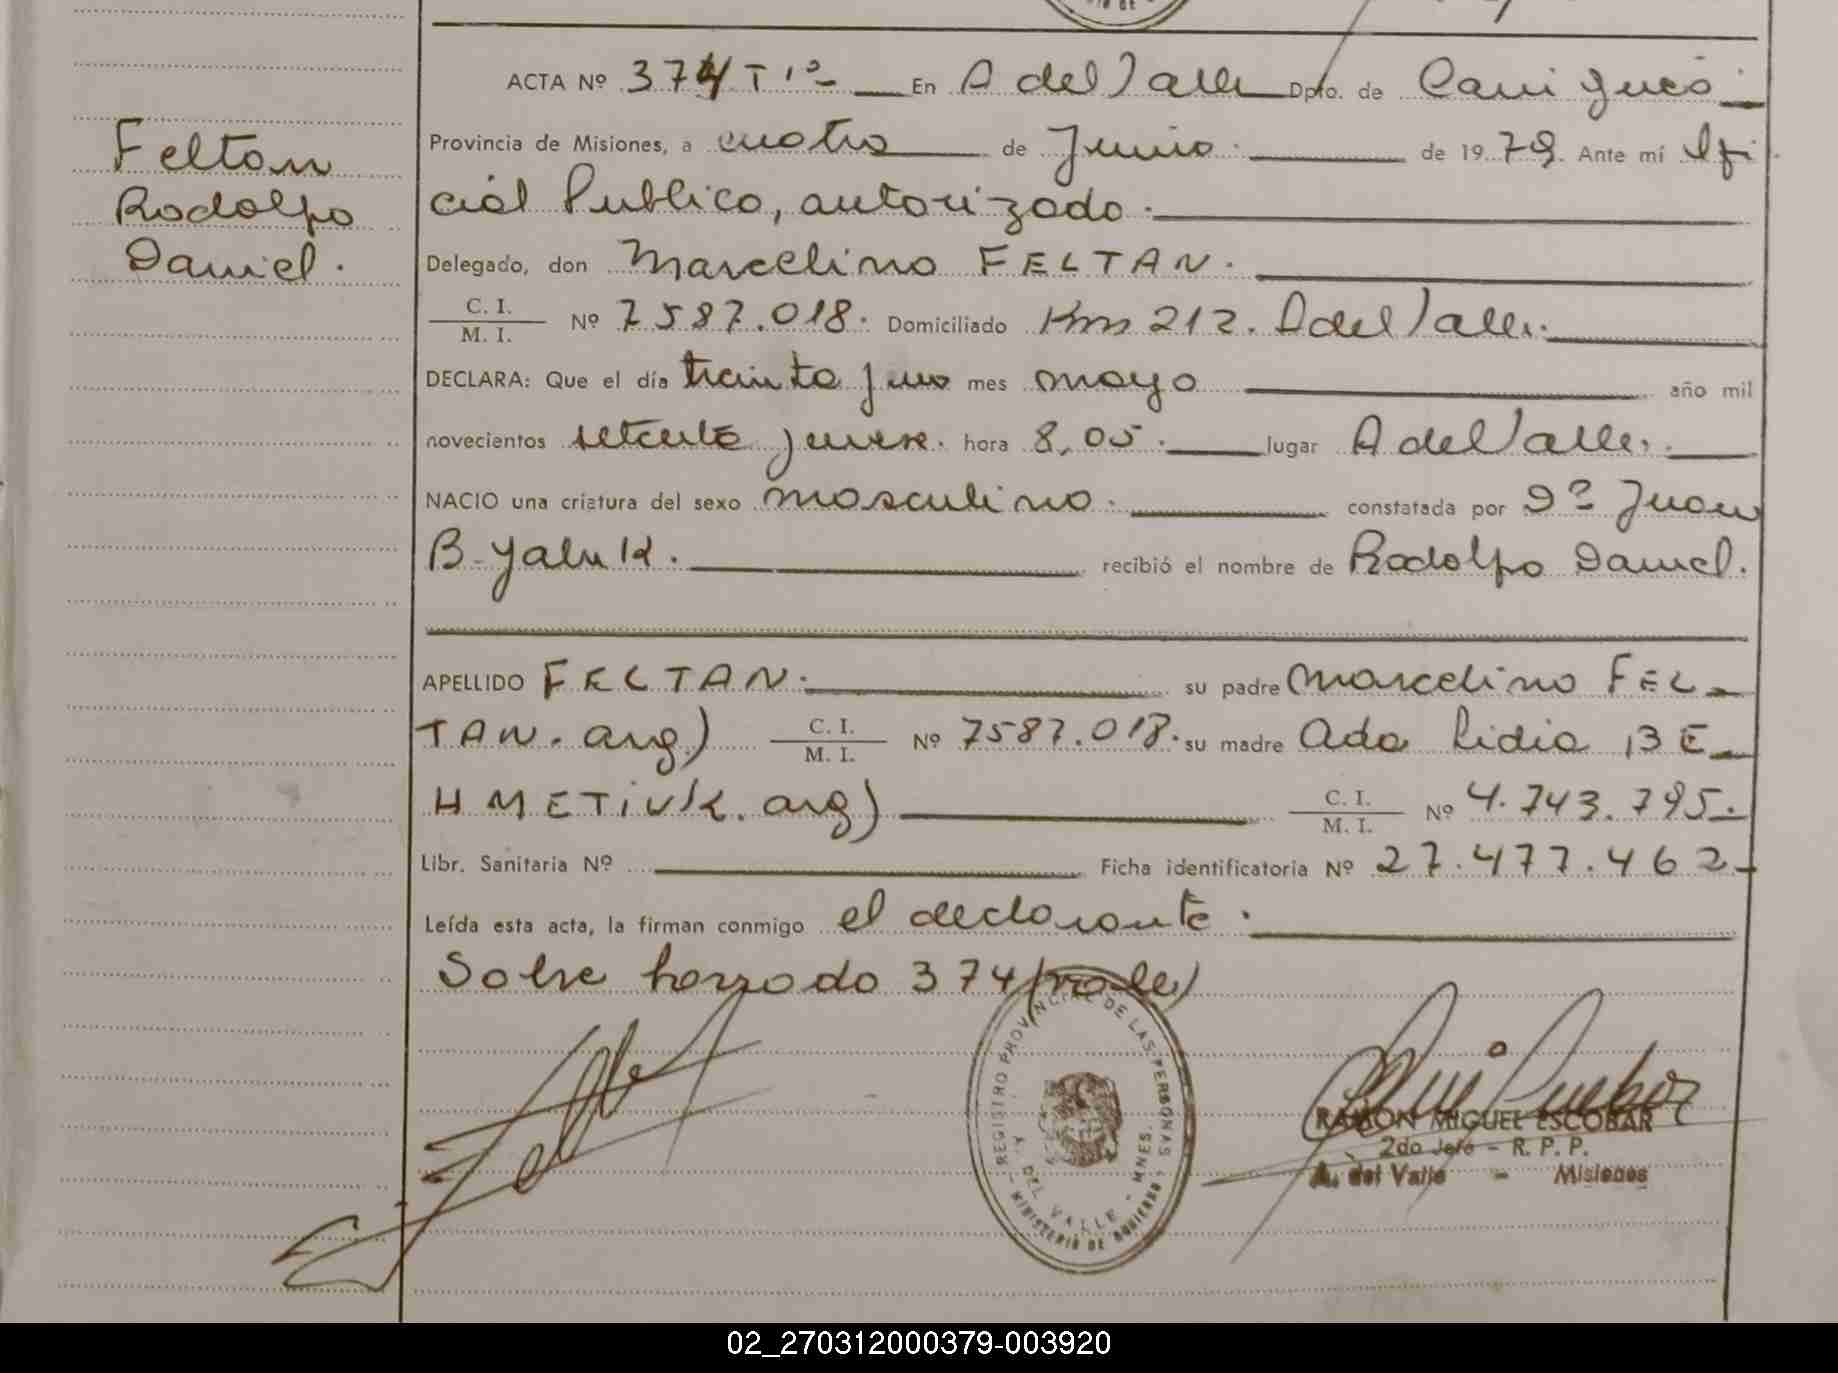 Feltan
Rodolfo
Daniel.
ACTA Nº 374 T 1º - En A del Valle Dpto. de Cainguás
Provincia de Misiones, a cuatro de Junio. de 19 79. Ante mí Ofi
cial Publico, autorizado.
Delegado, don Marcelino FELTAN.
C. I.
M. I. Nº 7587.018. Domiciliado Km 212. A del Valle.
DECLARA: Que el día treinta y uno mes mayo año mil
novecientos setenta y nueve. hora 8,05. lugar A del Valle.
NACIO una criatura del sexo masculino. constatada por Dº Juan
B. Yaluk. recibió el nombre de Rodolfo Daniel.
APELLIDO FELTAN. su padre Marcelino FEL-
TAN. arg) C. I. M. I. Nº 7587.018. su madre Ada Lidia BE-
HMETIUK. arg) C. I. M. I. Nº 4.743.795.
Libr. Sanitaria Nº Ficha identificatoria Nº 27.477.462-
Leída esta acta, la firman conmigo el declarante.
Sobre borrado 374 (vale)
REGISTRO PROVINCIAL DE LAS PERSONAS
A. DEL VALLE - MNES.
MINISTERIO DE GOBIERNO
RAMON MIGUEL ESCOBAR
2do Jefe - R. P. P.
A. del Valle - Misiones
02_270312000379-003920